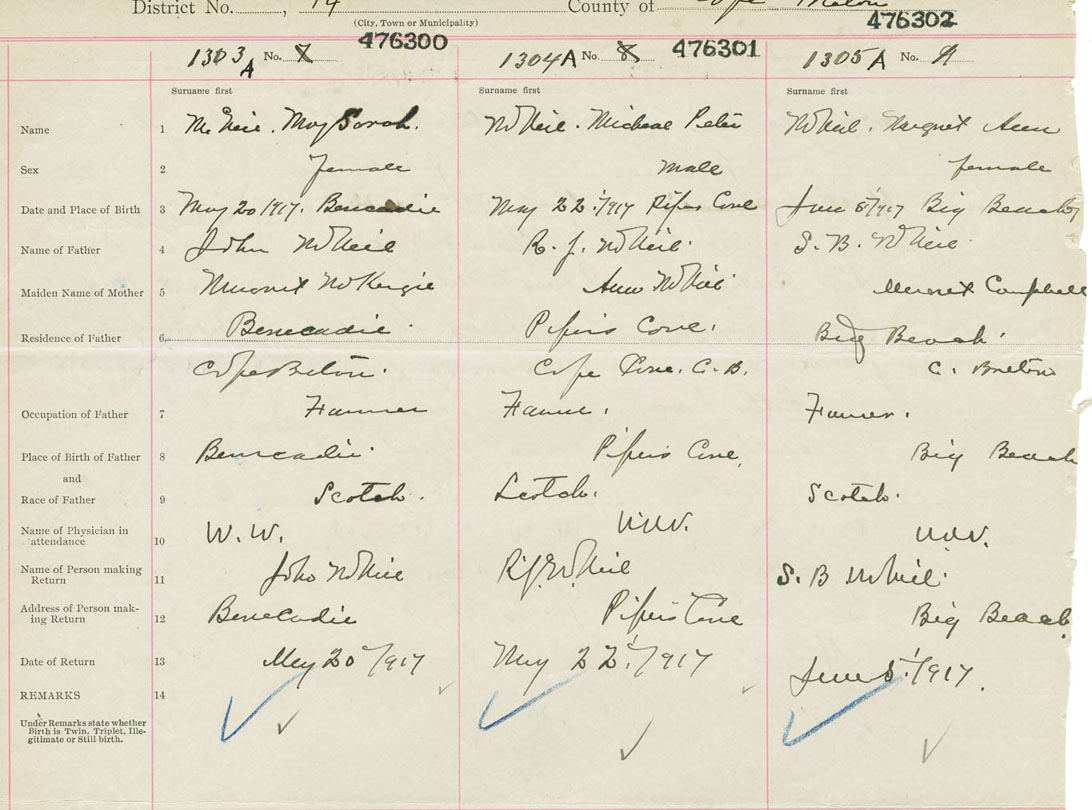 District No. 14 County of Cape Breton
(City, Town or Municipality)
476300 476301 476302
1303 A No. 1304 A No. 8 1305 A No.
Surname first Surname first Surname first
Name 1 McNeil. May Sarah. McNeil. Micheal Peter McNeil. Margret Ann
Sex 2 female male female
Date and Place of Birth 3 May 20/1917. Benecadie May 22/1917 Pipers Cove June 5/1917 Big Beach
Name of Father 4 John McNeil R. J. McNeil. S. B. McNeil.
Maiden Name of Mother 5 McKenzie Ann McNeil Campbell
Residence of Father 6 Benecadie. Pipers Cove. Big Beach.
Cape Breton. Cape Cove. C. B. C. Breton
Occupation of Father 7 Farmer Farmer. Farmer.
Place of Birth of Father 8 Benecadie. Pipers Cove. Big Beach
and
Race of Father 9 Scotch. Scotch. Scotch.
Name of Physician in attendance 10 W. W.
Name of Person making Return 11 John McNeil R. J. McNeil S. B McNeil.
Address of Person making Return 12 Benecadie Pipers Cove Big Beach
Date of Return 13 May 20/1917 May 22/1917 June 5/1917.
REMARKS 14
Under Remarks state whether
Birth is Twin, Triplet, Ille-
gitimate or Still birth.